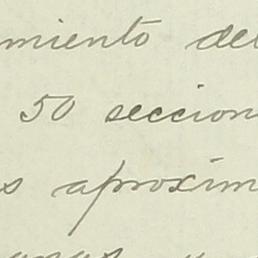 miento del
50 seccion
s aproxim